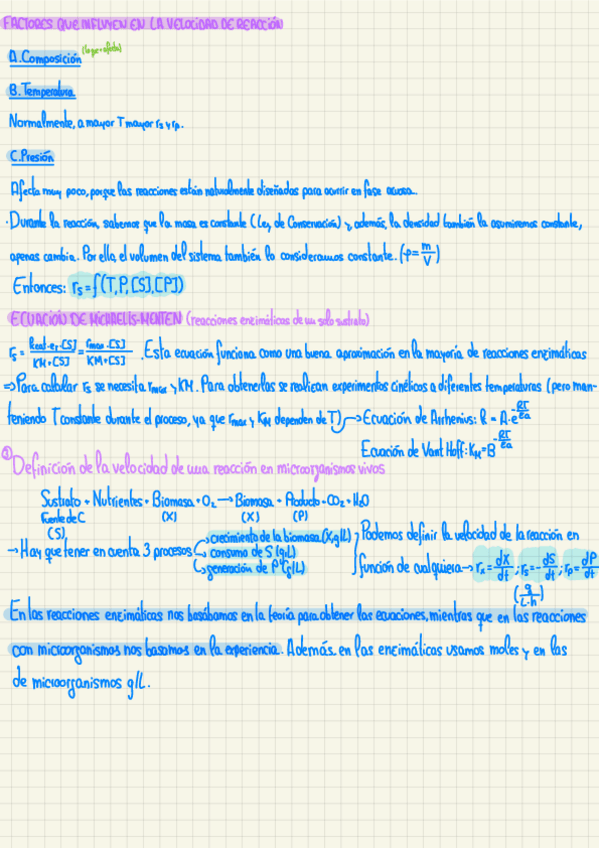 FACTORES QUE INFLUYEN EN LA VELOCIDAD DE REACCIÓN
A. Composición (lo que + afecta)
B. Temperatura
Normalmente, a mayor T mayor rs y rp.
C. Presión
Afecta muy poco, porque las reacciones están naturalmente diseñadas para ocurrir en fase acuosa.
· Durante la reacción, sabemos que la masa es constante (Ley de Conservación) y además, la densidad también la asumiremos constante,
apenas cambia. Por ello, el volumen del sistema también lo consideramos constante. (ρ = m/V)
Entonces: rs = f(T, P, [S], [P])
ECUACIÓN DE MICHAELIS-MENTEN (reacciones enzimáticas de un solo sustrato)
rs = kcat·eT·[S] / KM + [S] = rmax·[S] / KM + [S] . Esta ecuación funciona como una buena aproximación en la mayoría de reacciones enzimáticas
⇒ Para calcular rs se necesita rmax y KM. Para obtenerlas se realizan experimentos cinéticos a diferentes temperaturas (pero man-
teniendo T constante durante el proceso, ya que rmax y KM dependen de T) → Ecuación de Arrhenius: K = A·e^-RT/Ea
Ecuación de Vant Hoff: KM = B^-RT/Ea
① Definición de la velocidad de una reacción en microorganismos vivos
Sustrato + Nutrientes + Biomasa + O2 → Biomasa + Producto + CO2 + H2O
Fuente de C (X) (X) (P)
(S)
→ Hay que tener en cuenta 3 procesos → crecimiento de la biomasa (X, g/L)
→ consumo de S (g/L)
→ generación de P (g/L)
Podemos definir la velocidad de la reacción en
función de cualquiera → rx = dX/dt ; rs = - dS/dt ; rp = dP/dt
(g/L·h)
En las reacciones enzimáticas nos basábamos en la teoría para obtener las ecuaciones, mientras que en las reacciones
con microorganismos nos basamos en la experiencia. Además, en las enzimáticas usamos moles y en las
de microorganismos g/L.